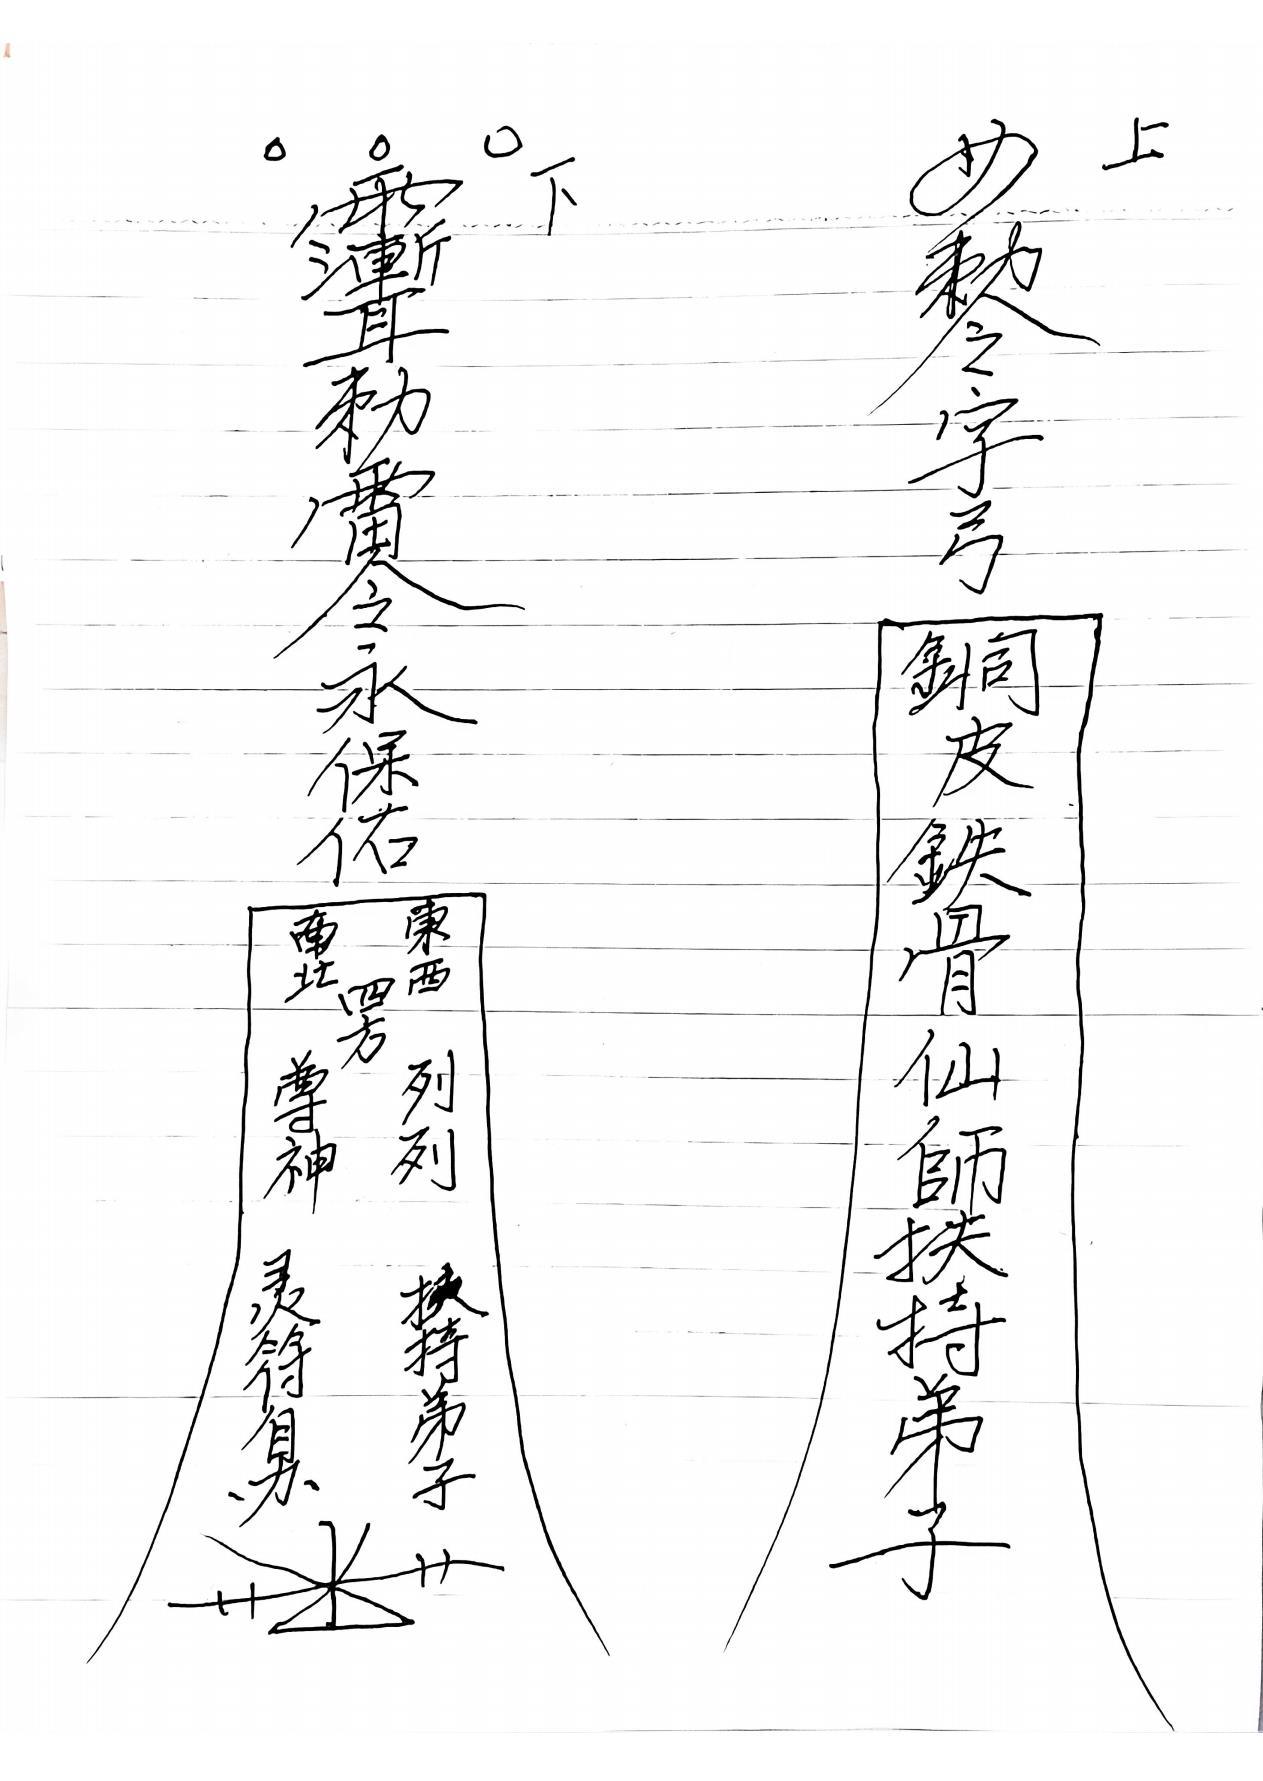 上
勅令字弓
銅皮鉄骨仙師扶持弟子
下
勅雷令永保佑
東西
南北
四方
列列
尊神
扶持弟子
灵符